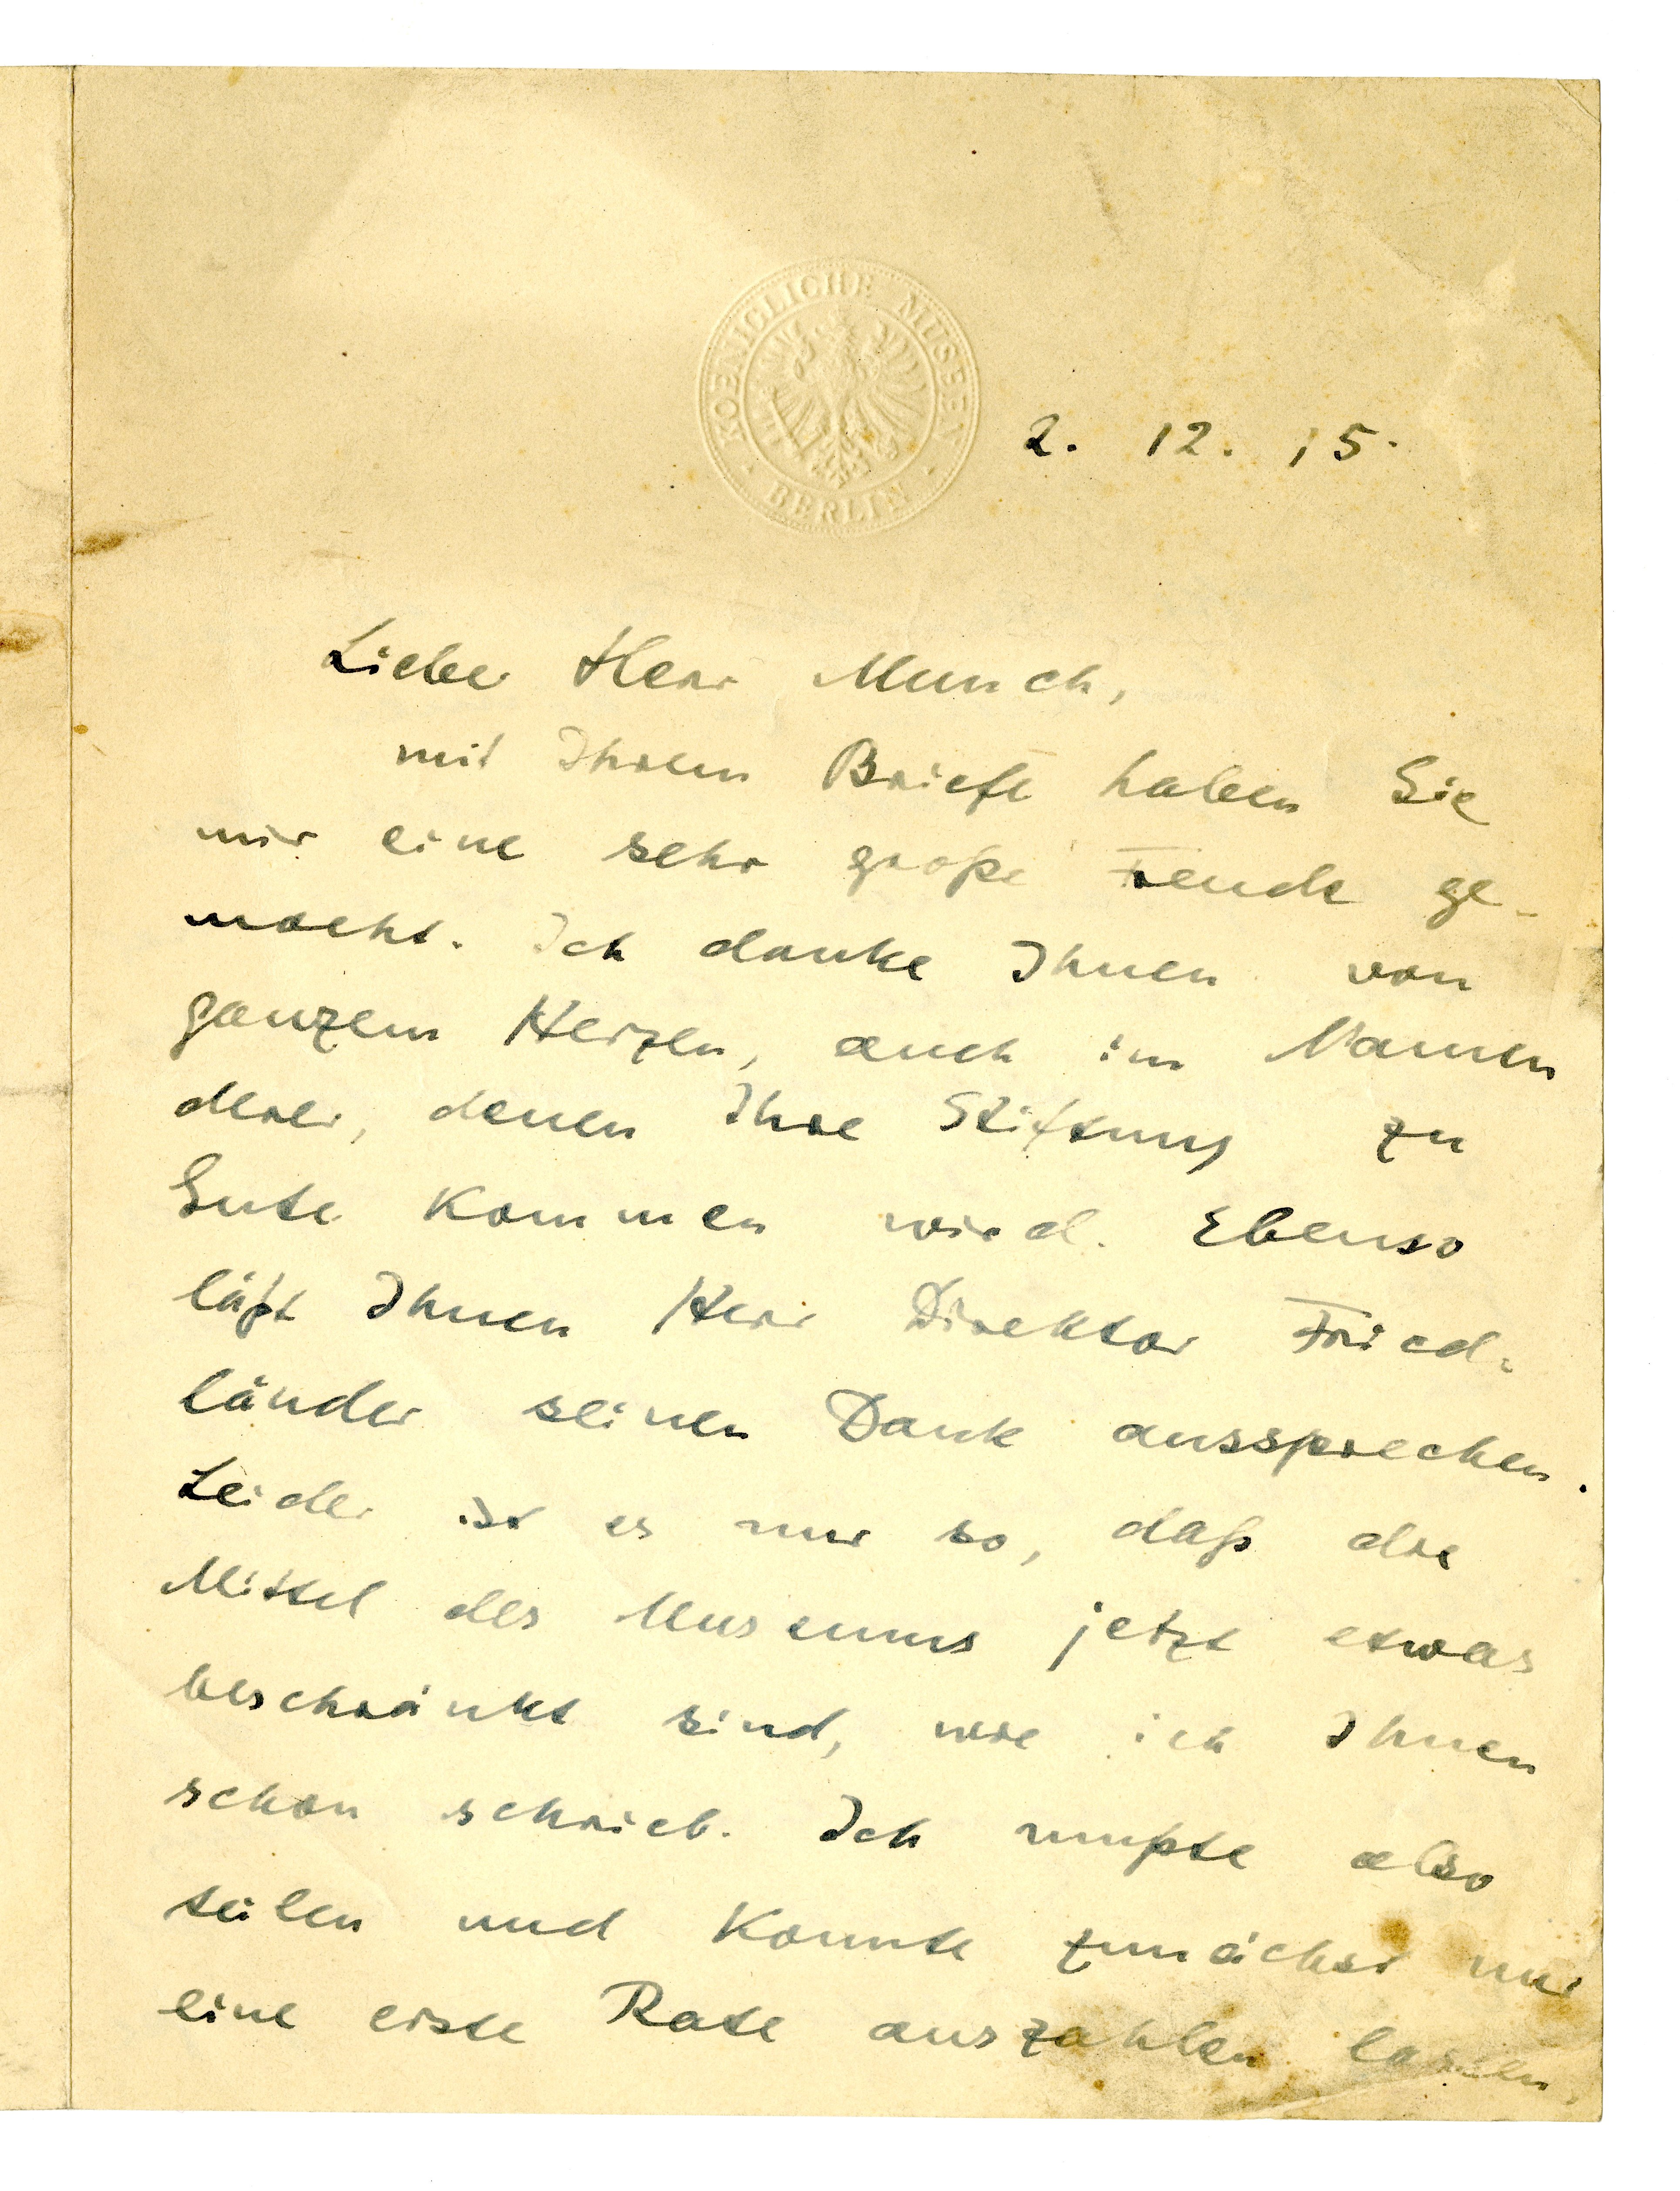 KOENIGLICHE MUSEEN
BERLIN
2. 12. 15.
Lieber Herr Munch,
mit Ihrem Briefe haben Sie
mir eine sehr große Freude ge-
macht. Ich danke Ihnen von
ganzem Herzen, auch im Namen
derer, denen Ihre Stiftung zu
Gute kommen wird. Ebenso
läßt Ihnen Herr Direktor Fried-
länder seinen Dank aussprechen.
Leider ist es nur so, daß die
Mittel des Museums jetzt etwas
beschränkt sind, wie ich Ihnen
schon schrieb. Ich mußte also
teilen und konnte zunächst nur
eine erste Rate auszahlen lassen.